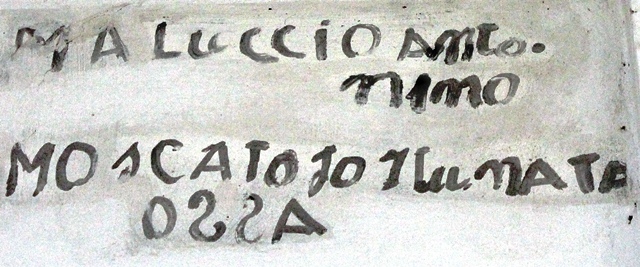 MALUCCiO ANto.
NINO
MOSCATOJO Ilu.nATA
OSSA